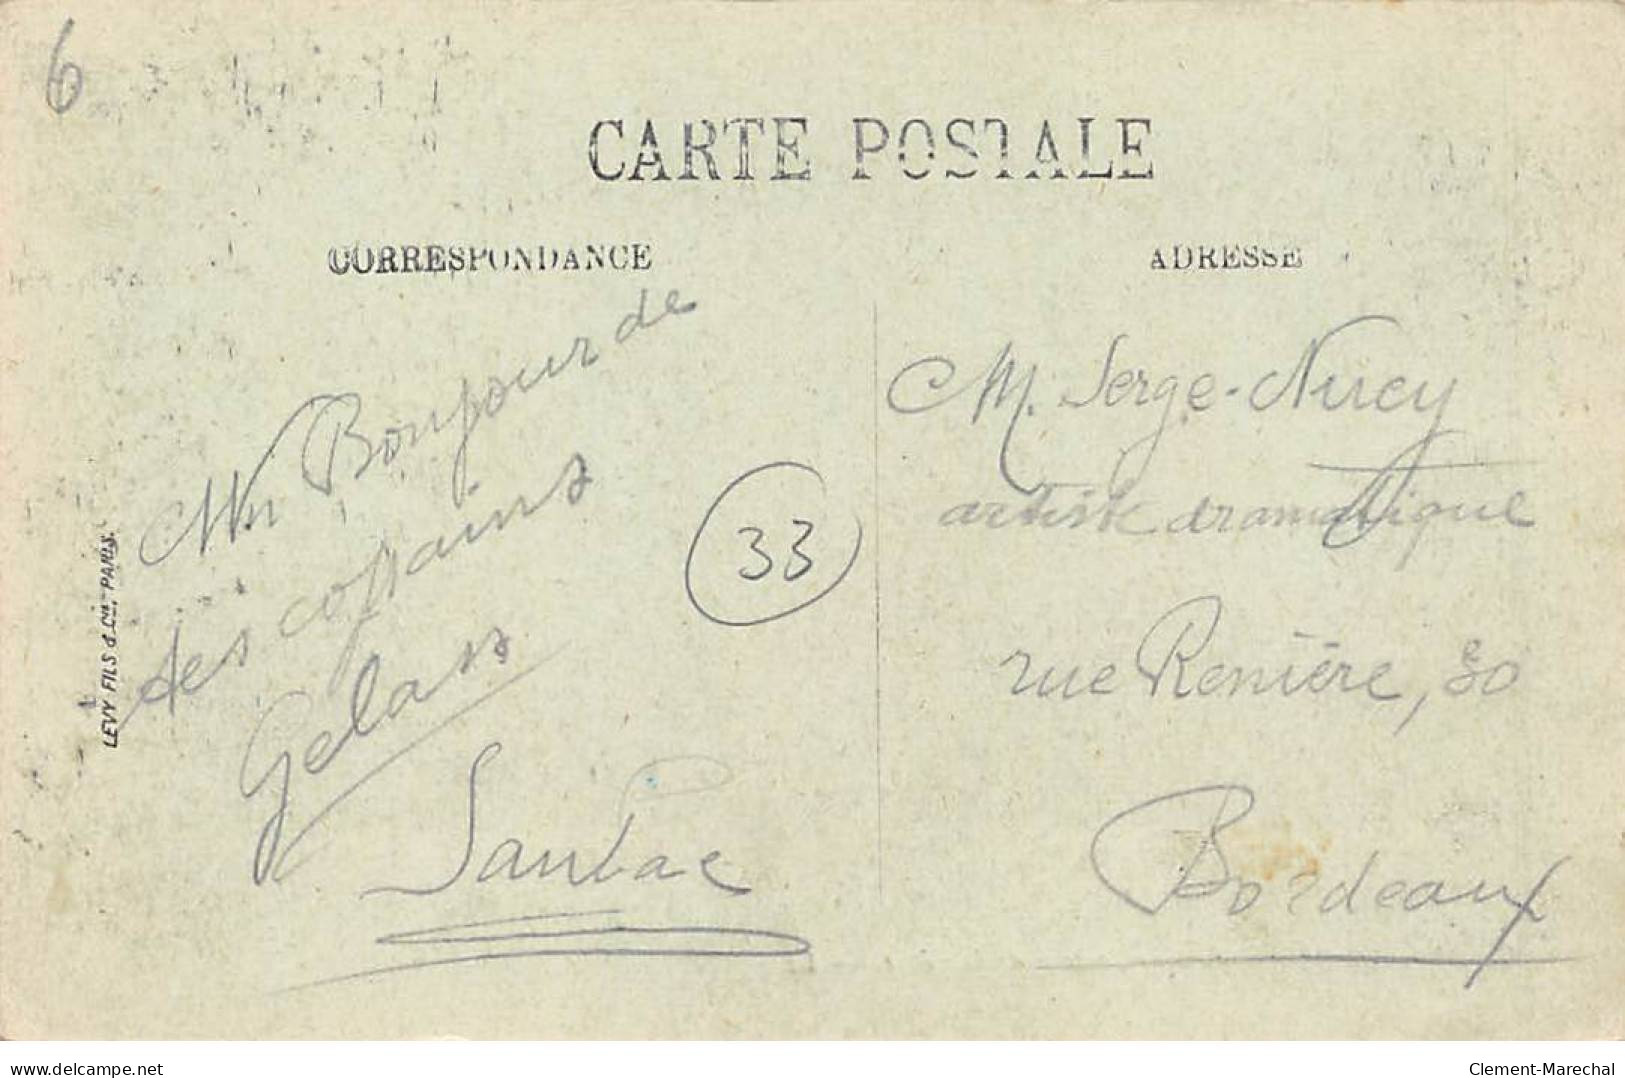 6
CARTE POSTALE
CORRESPONDANCE
ADRESSE
Un Bonjour de
tes copains
Gelas
Saubac
33
LEVY FILS & Cie, PARIS.
M. Serge-Nircy
artiste dramatique
rue Renière, 30
Bordeaux
www.delcampe.net
Clement-Marechal